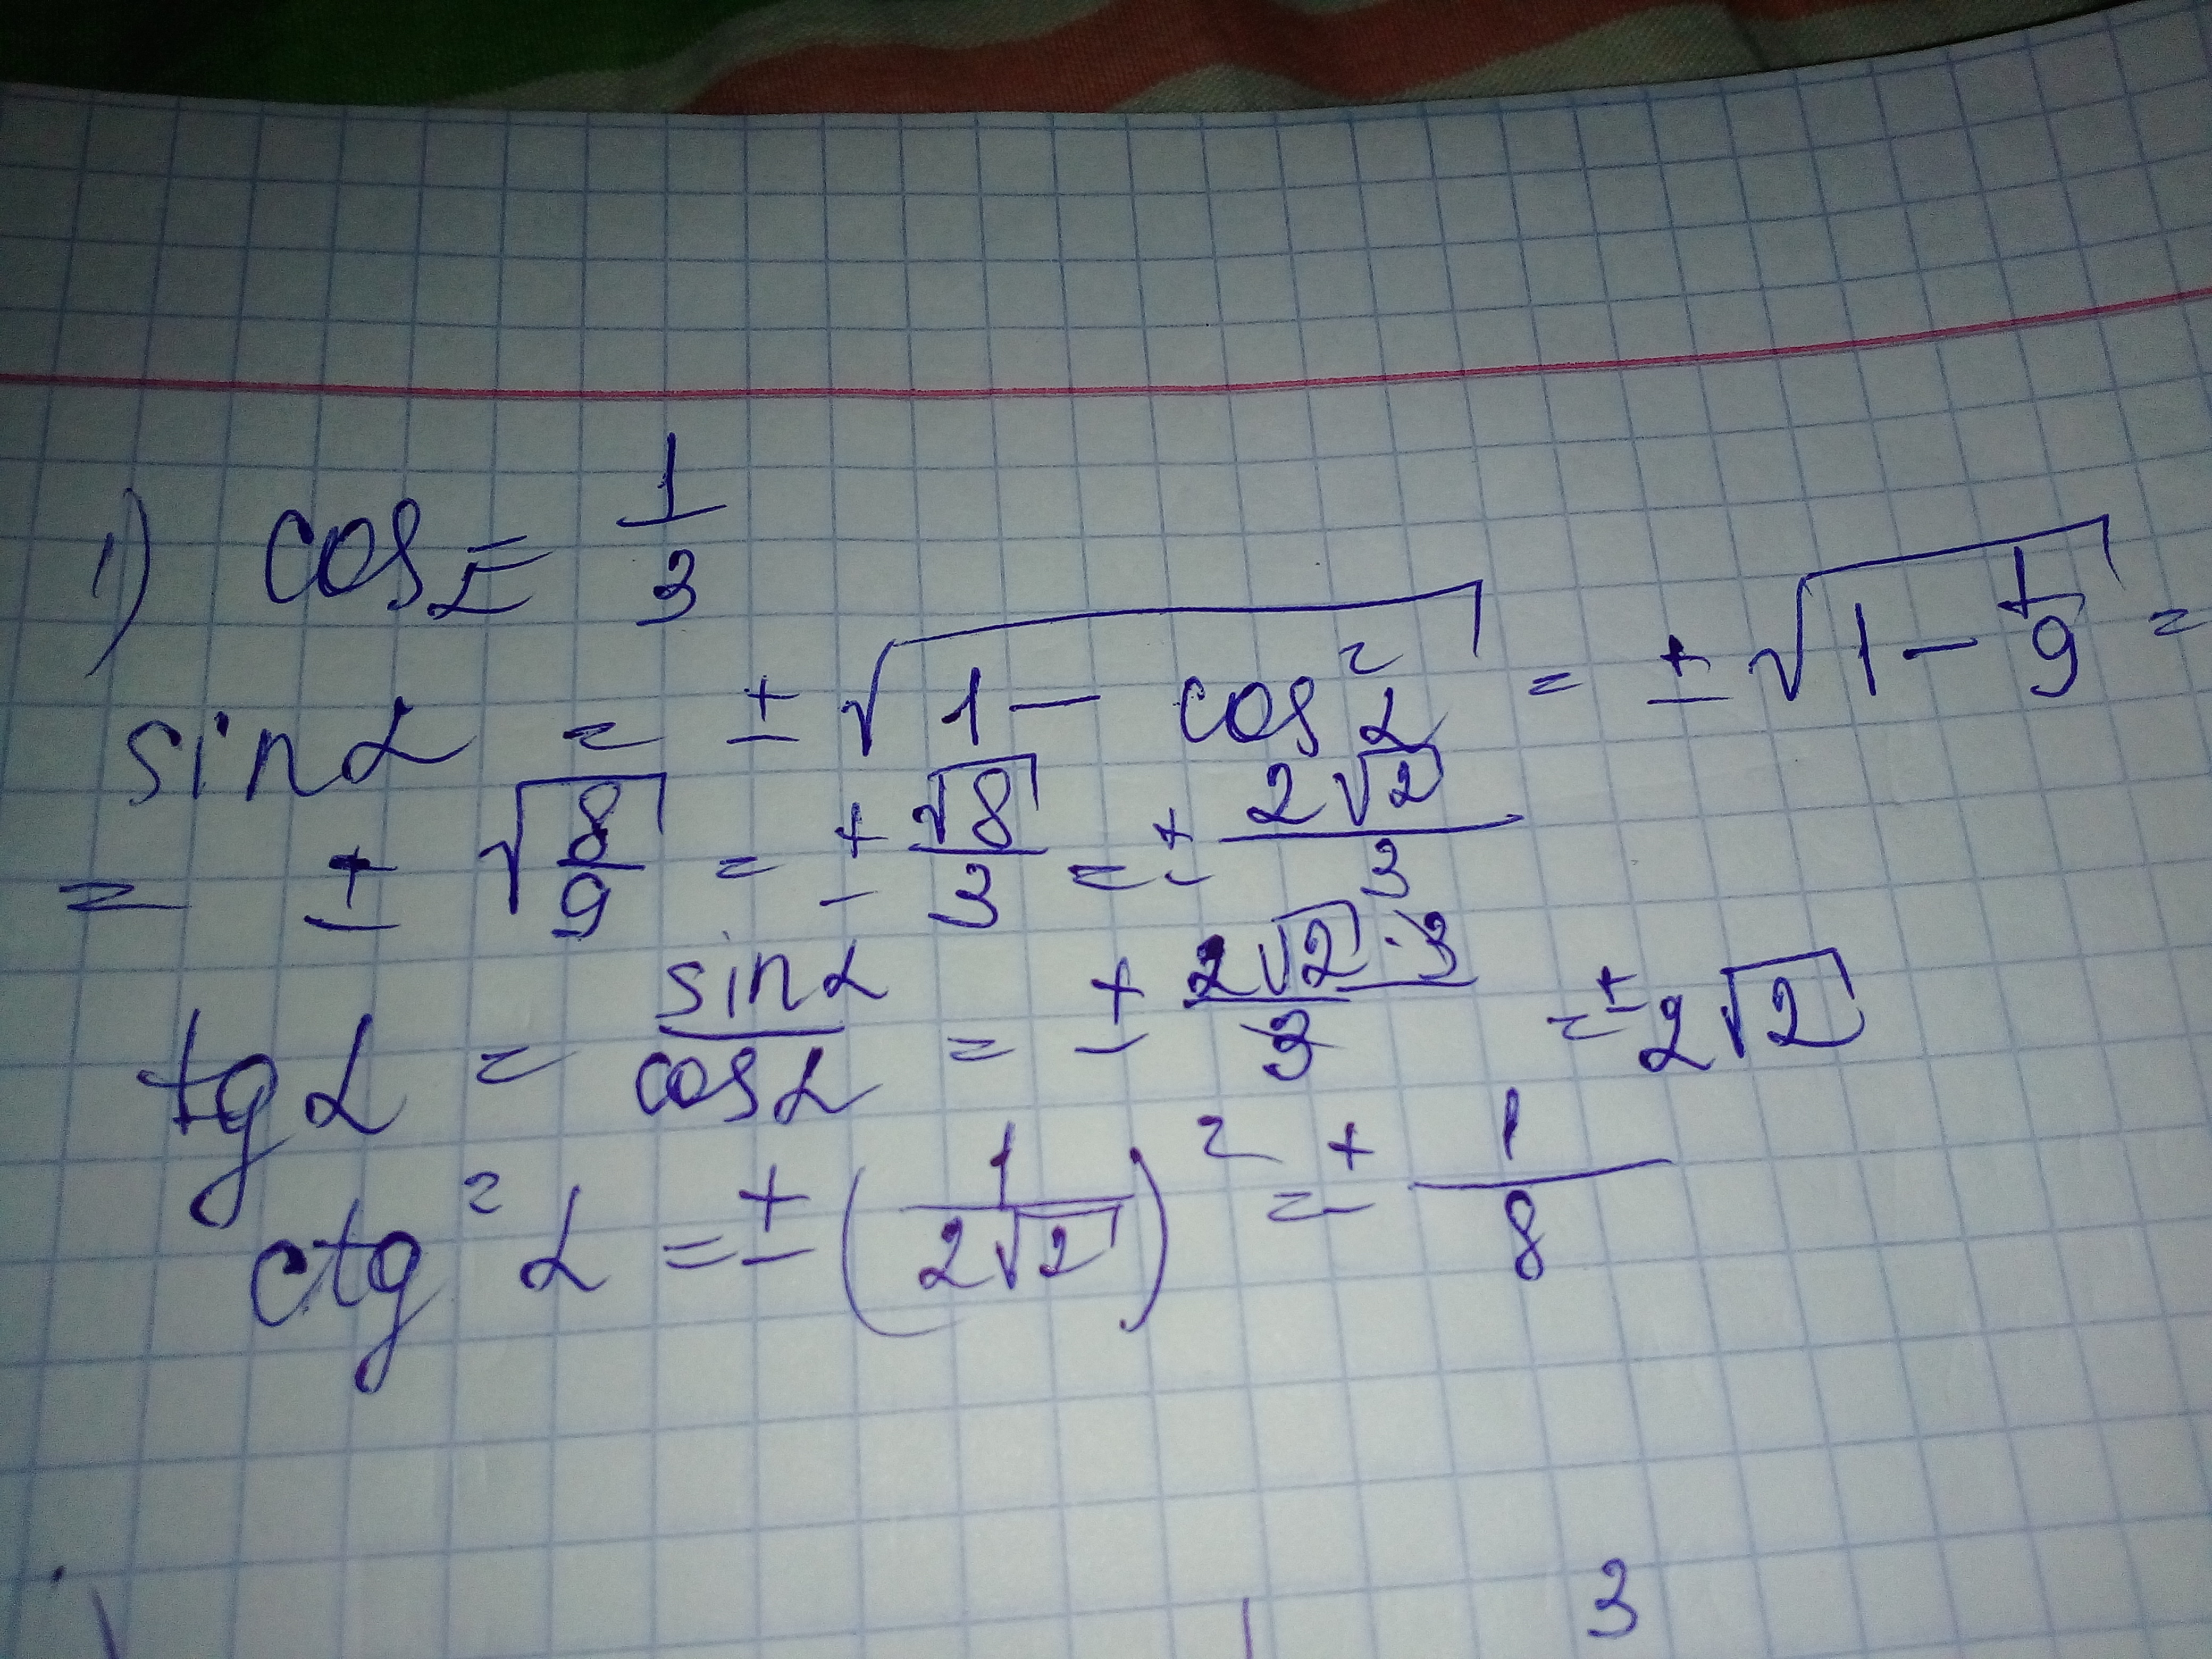 1) cos α = 1/3
sin α = ± √(1 − cos² α) = ± √(1 − 1/9) =
= ± √(8/9) = ± √8/3 = ± 2√2/3
tg α = sin α/cos α = ± 2√2 · 3/3 = ± 2√2
ctg² α = ± (1/(2√2))² = ± 1/8
3